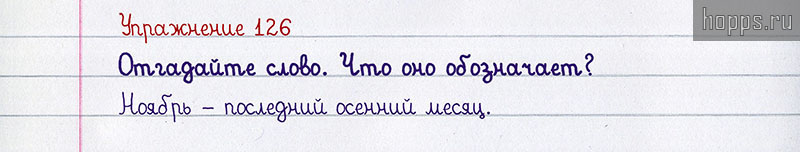 Упражнение 126
hopps.ru
Отгадайте слово. Что оно обозначает?
Ноябрь – последний осенний месяц.